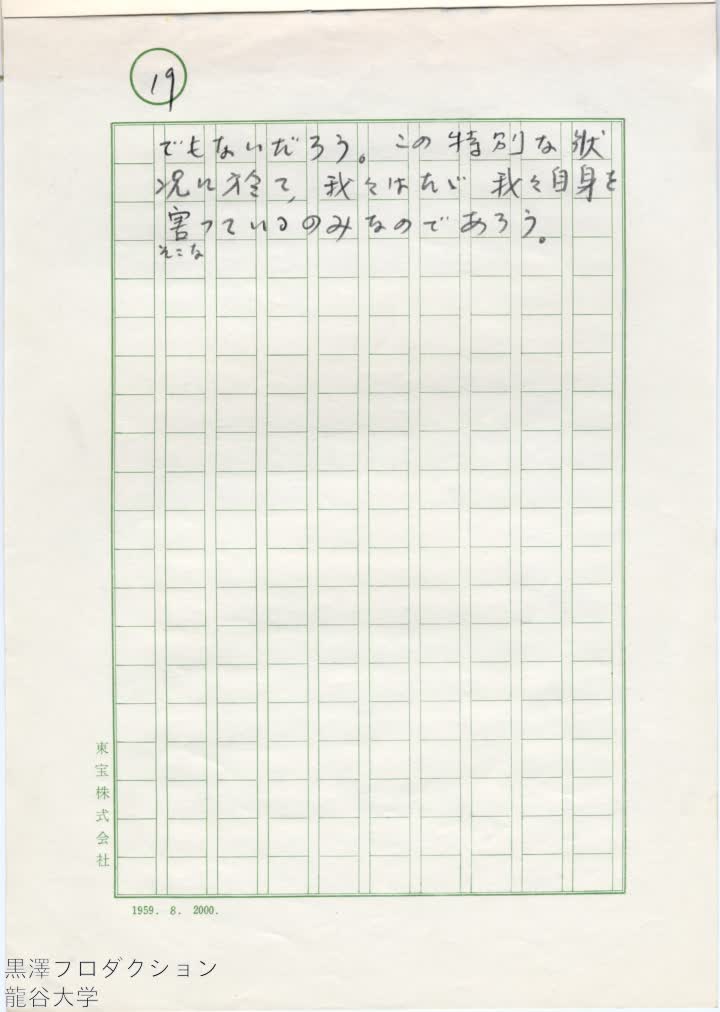 19
でもないだろう。この特別な状
況に於て、我々はたゞ我々自身を
害っているのみなのであろう。
そこな
東宝株式会社
1959. 8. 2000.
黒澤プロダクション
龍谷大学